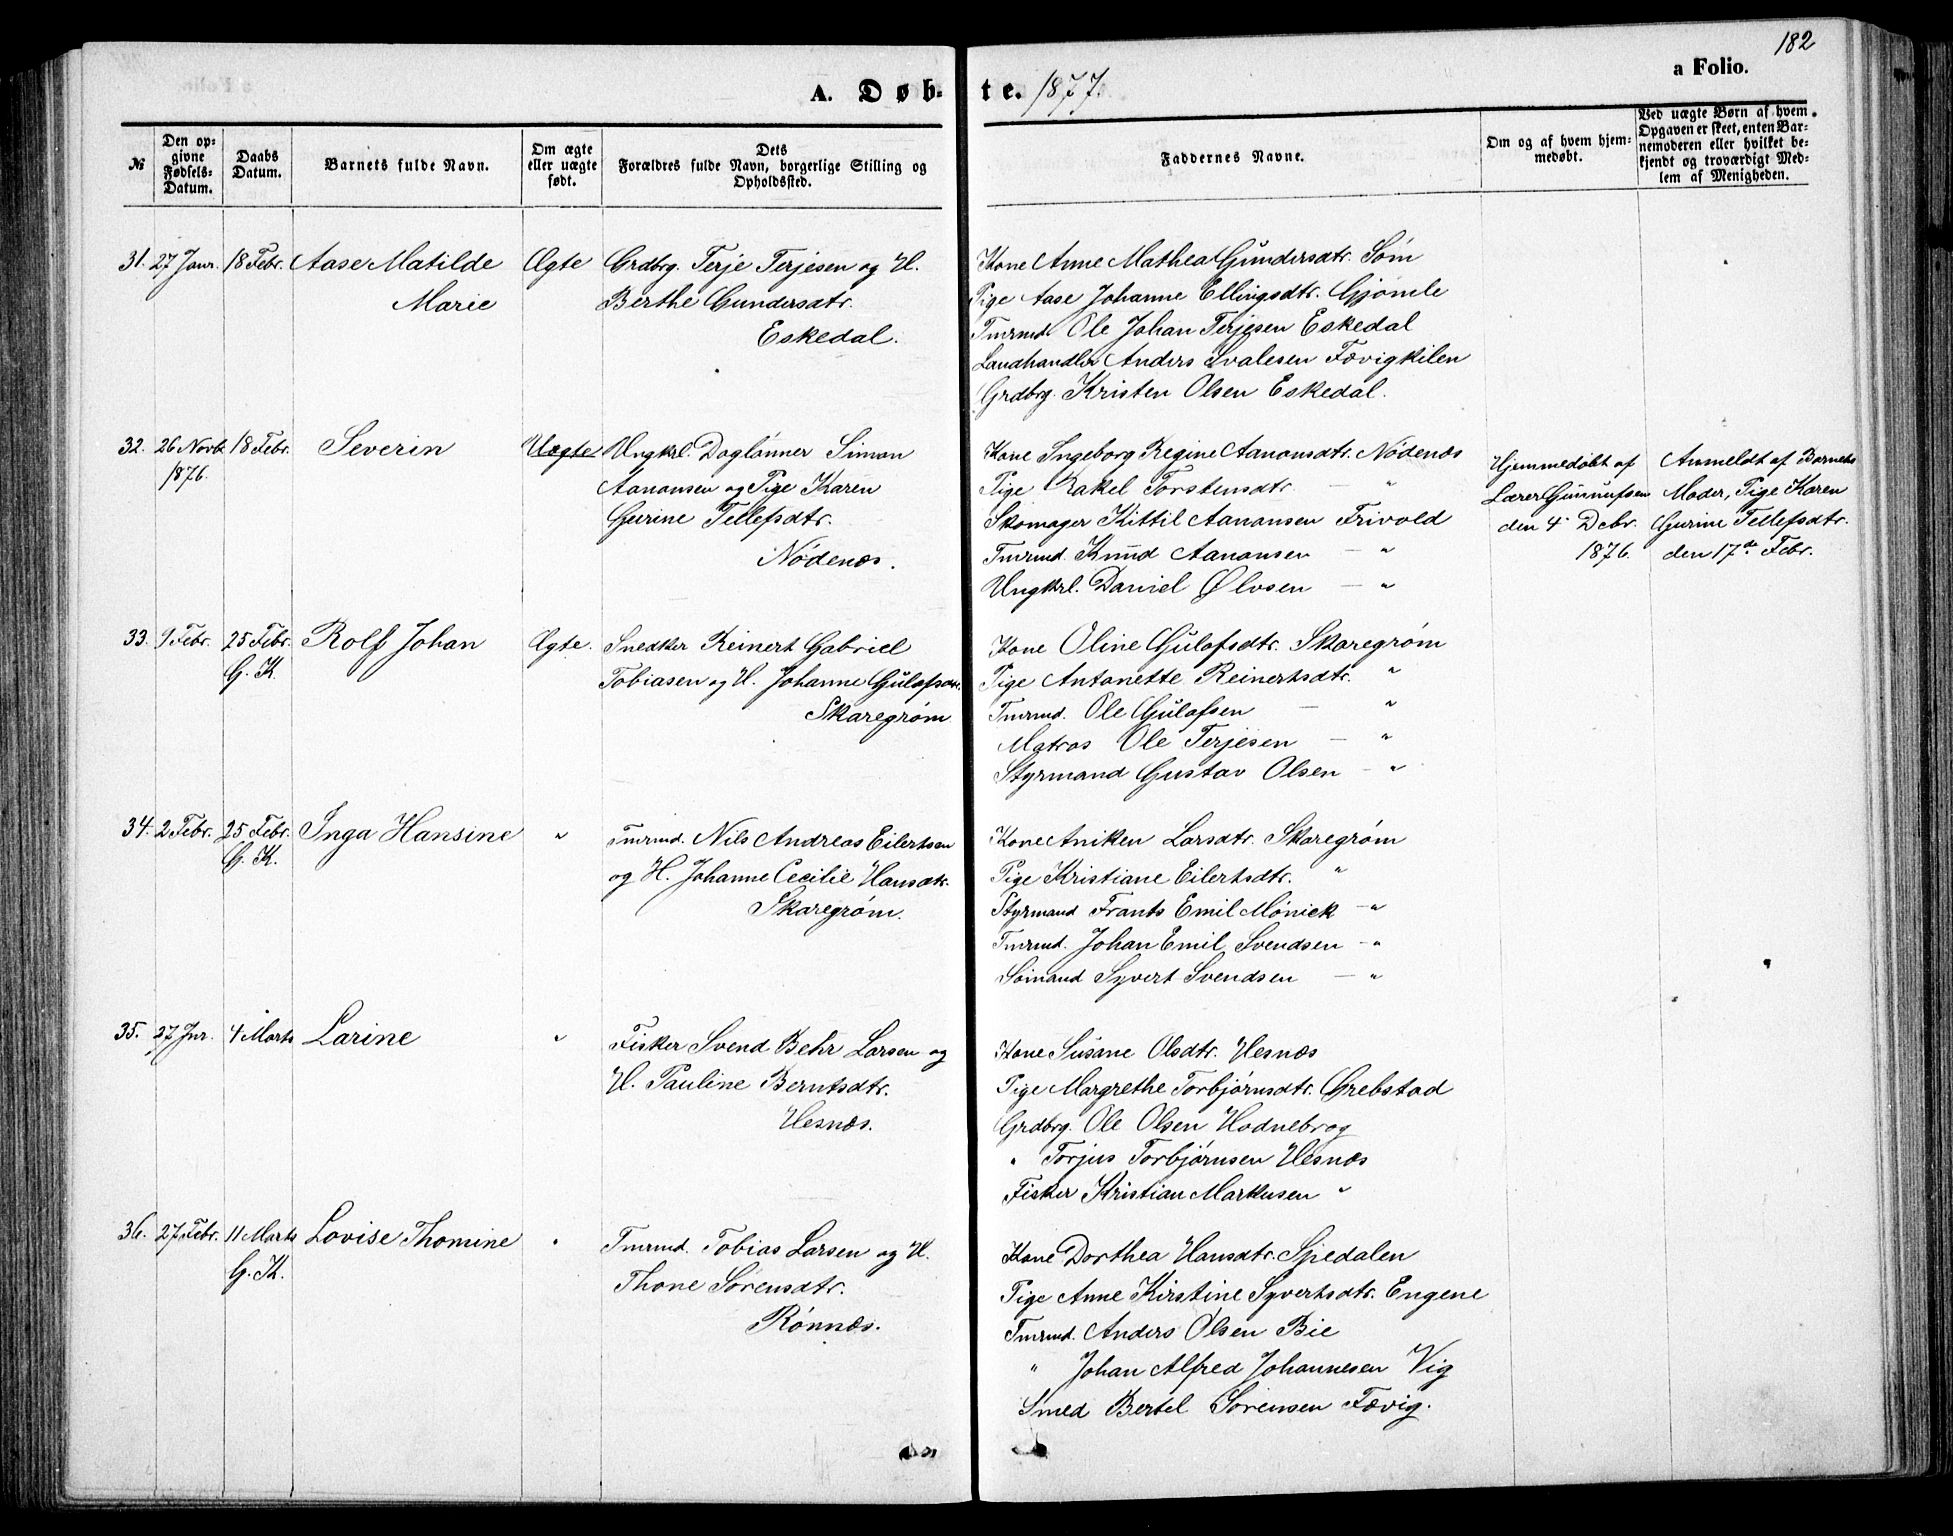 182
a Folio.
A. Døbte. 1877.
№
Den opgivne Fødsels-Datum.
Daabs Datum.
Barnets fulde Navn.
Om ægte eller uægte født.
Dets Forældres fulde Navn, borgerlige Stilling og Opholdssted.
Faddernes Navne.
Om og af hvem hjemmedøbt.
Ved uægte Børn af hvem Opgaven er skeet, enten Barnemoderen eller hvilket bekjendt og troværdigt Medlem af Menigheden.
31. 27 Janr. 18 Febr. Aase Matilde Ægte Grdbrg. Terje Terjesen og H.
Marie Berthe Gundersdtr.
Eskedal.
Kone Anne Mathea Gundersdtr. Søm
Pige Aase Johanne Ellingsdtr. Gjømle
Tmrmd. Ole Johan Terjesen Eskedal
Landhandler Anders Svalesen Fævigkilen
Grdbrg. Kristen Olsen Eskedal.
32. 26 Novbr. 18 Febr. Severin Uægte Ungkrl. Daglønner Simon
1876. Aanonsen og Pige Karen
Gurine Tellefsdtr.
Nødenæs.
Kone Ingeborg Regine Aanonsdtr. Nødenæs
Pige Rakel Torstensdtr. — "
Skomager Kittil Aanonsen Frivold
Tmrmd. Knud Aanonsen — "
Ungkrl. Daniel Ølvsen — "
Hjemmedøbt af
Lærer Gunnufsen
den 4de Debr.
1876.
Anmeldt af Barnets
Moder, Pige Karen
Gurine Tellefsdtr.
den 17de Febr.
33. 9 Febr. 25 Febr. Rolf Johan Ægte. Snedker Reinert Gabriel
G. K. Tobiasen og H. Johanne Gulofsdtr.
Skaregrøm
Kone Oline Gulofsdtr. Skaregrøm
Pige Antonette Reinertsdtr. "
Tmrmd. Ole Gulofsen — "
Matros Ole Terjesen — "
Styrmand Gustav Olsen — "
34. 2 Febr. 25 Febr. Inga Hansine " Tmrmd. Nils Andreas Eilertsen
G. K. og H. Johanne Cecilie Hansdtr.
Skaregrøm.
Kone Aniken Larsdtr. Skaregrøm
Pige Kristiane Eilertsdtr. "
Styrmand Frants Emil Mønick — "
Tmrmd. Johan Emil Svendsen — "
Sømand Syvert Svendsen — "
35. 27 Jnr. 4 Marts Larine " Fisker Svend Behr Larsen og
H. Pauline Berntsdtr.
Hesnæs.
Kone Susane Olsdtr. Hesnæs
Pige Margrethe Torbjørnsdtr. Grebstad
Grdbrg. Ole Olsen Hodnebrog
" Torjus Torbjørnsen Hesnæs
Fisker Kristian Markusen "
36. 27 Febr. 11 Marts Lovise Thomine " Tmrmd. Tobias Larsen og H.
G. K. Thone Sørensdtr.
Rønnæs.
Kone Dorthea Hansdtr. Spedalen
Pige Anne Kirstine Syvertsdtr. Engene
Tmrmd. Anders Olsen Bie
" Johan Alfred Johannesen Vig
Smed Bertel Sørensen Fævig.